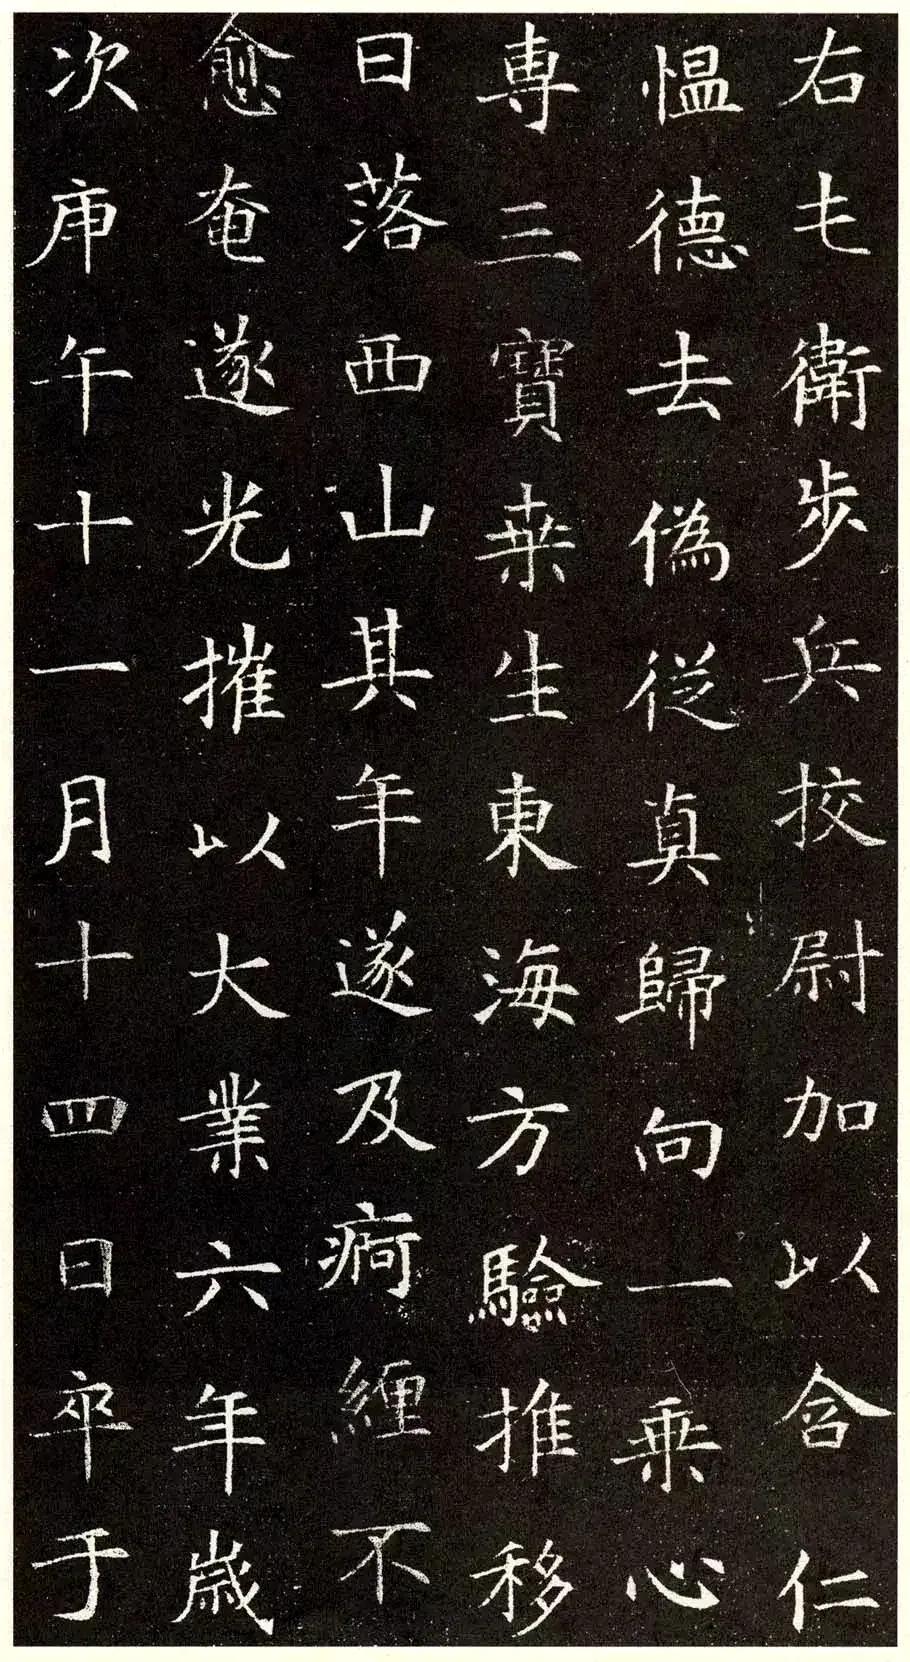 右屯衛步兵挍尉加以含仁
愠德去偽從真歸向一乘心
専三寶桒生東海方驗推移
日落西山其年遂及痾纏不
愈奄遂光摧以大業六年歲
次庚午十一月十四日卒于